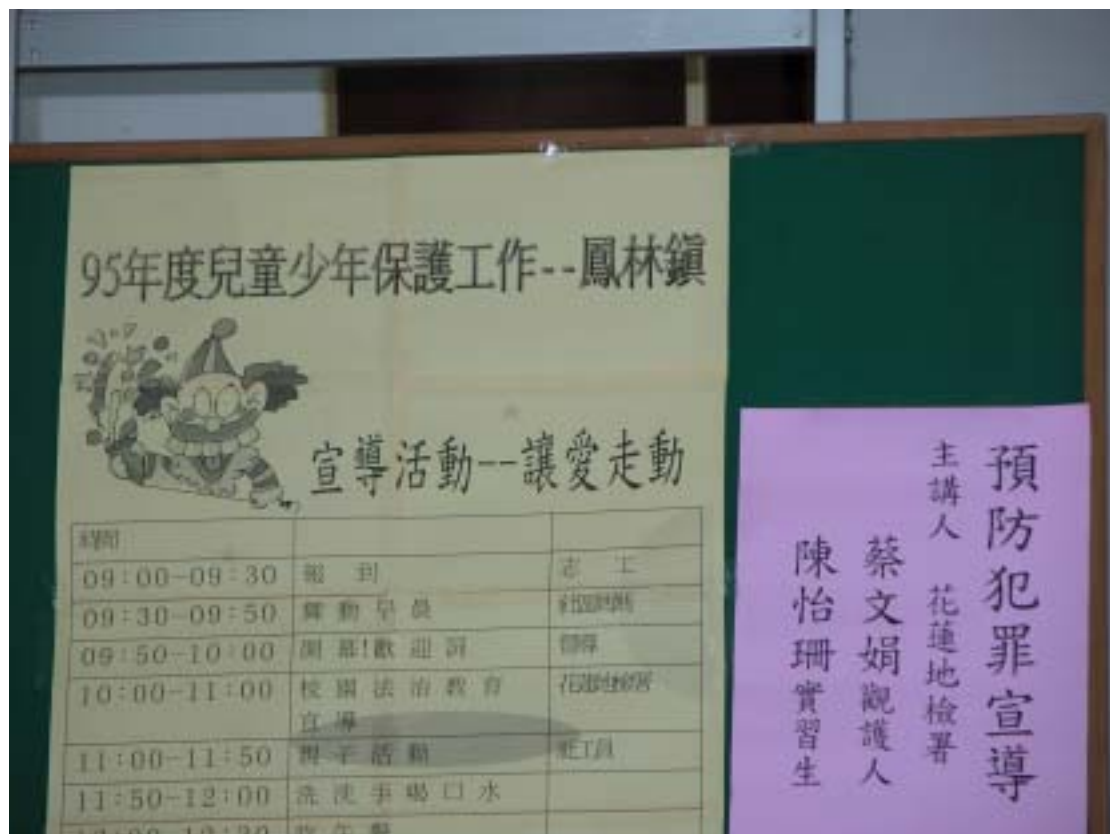 95年度兒童少年保護工作--鳳林鎮
宣導活動--讓愛走動
時間
09:00-09:30 報 到 志 工
09:30-09:50 舞動早晨
09:50-10:00 開幕!歡迎詞
10:00-11:00 校園法治教育 花蓮地檢署
宣導
11:00-11:50 親子活動 社工員
11:50-12:00 洗洗手喝口水
預防犯罪宣導
主講人 花蓮地檢署
蔡文娟觀護人
陳怡珊實習生